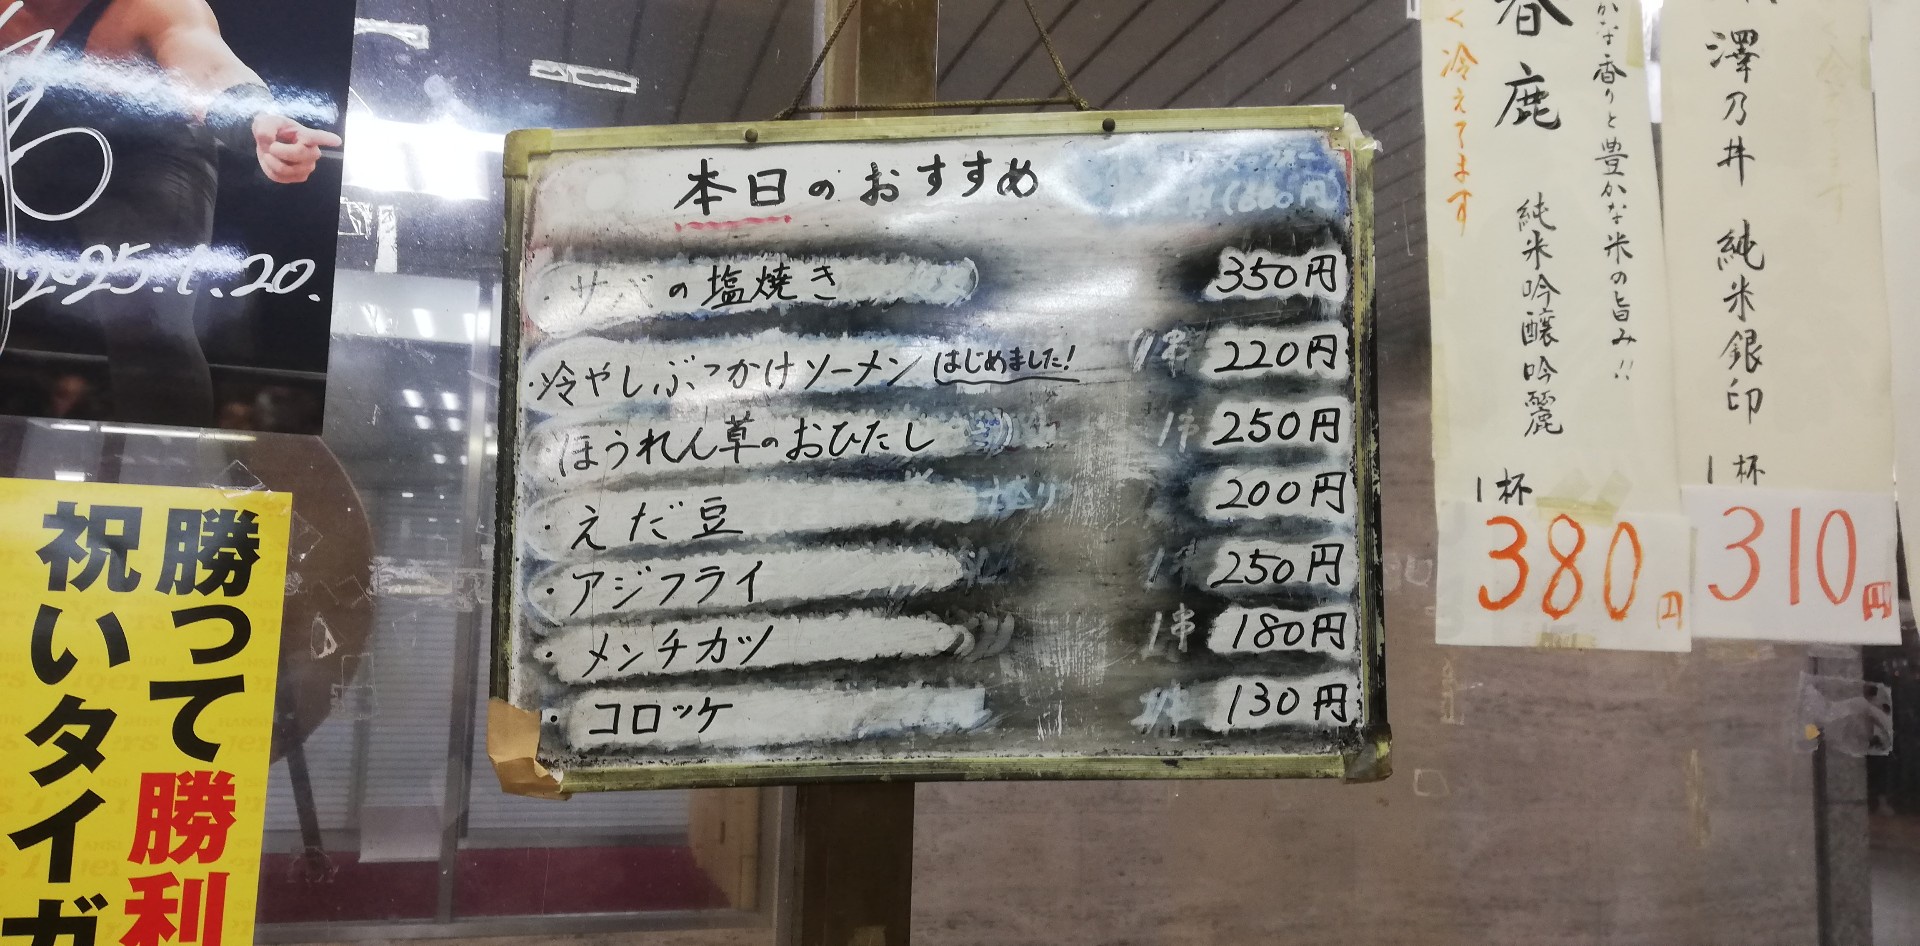 2025.1.20.
勝って勝利
祝いタイガ
本日のおすすめ
・サバの塩焼き 350円
・冷やしぶっかけソーメン はじめました! 220円
・ほうれん草のおひたし 250円
・えだ豆 200円
・アジフライ 250円
・メンチカツ 1串 180円
・コロッケ 130円
澤乃井 純米銀印
1杯
310円
かな香りと豊かな米の旨み!!
春鹿 純米吟醸吟麗
1杯
380円
く冷えてます